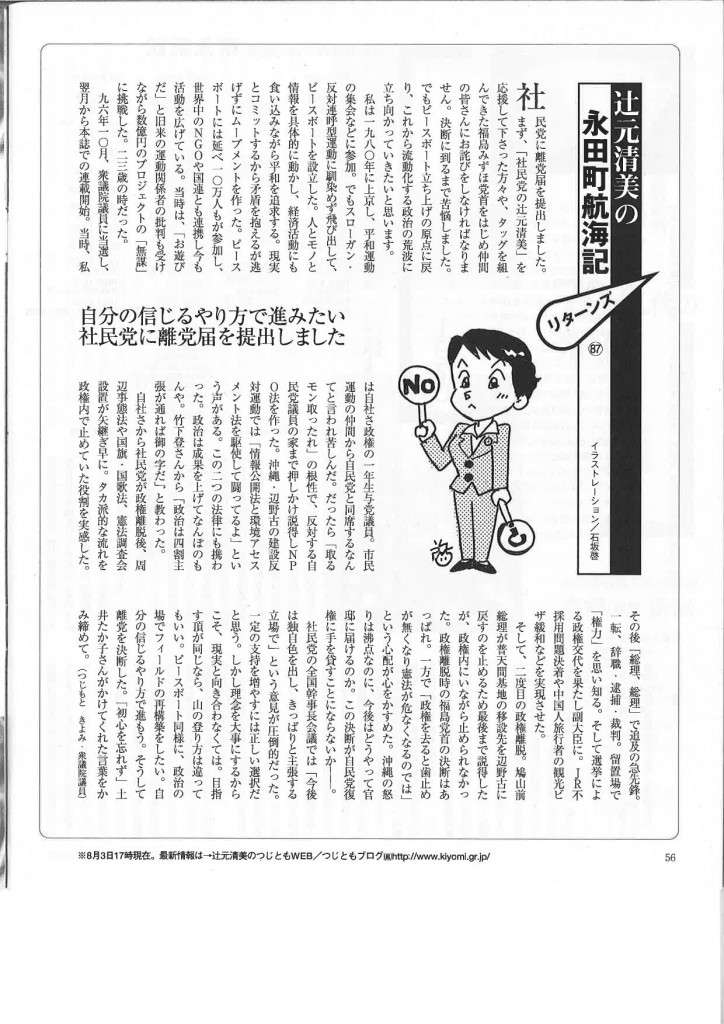 辻元清美の
永田町航海記
リターンズ
87
イラストレーション/石坂啓
No
自分の信じるやり方で進みたい
社民党に離党届を提出しました
社民党に離党届を提出しました。
まず、「社民党の辻元清美」を
応援して下さった方々や、タッグを組
んできた福島みずほ党首をはじめ仲間
の皆さんにお詫びをしなければなりま
せん。決断に到るまで苦悩しました。
でもピースボート立ち上げの原点に戻
り、これから流動化する政治の荒波に
立ち向かっていきたいと思います。
私は一九八〇年に上京し、平和運動
の集会などに参加。でもスローガン・
反対連呼型運動に馴染めず飛び出して、
ピースボートを設立した。人とモノと
情報を具体的に動かし、経済活動にも
食い込みながら平和を追求する。現実
とコミットするから矛盾を抱えるが逃
げずにムーブメントを作った。ピース
ボートには延べ一〇万人もが参加し、
世界中のNGOや国連とも連携し今も
活動を広げている。当時は、「お遊び
だ」と旧来の運動関係者の批判も受け
ながら数億円のプロジェクトの「無謀」
に挑戦した。二三歳の時だった。
九六年一〇月、衆議院議員に当選し、
翌月から本誌での連載開始。当時、私
は自社さ政権の一年生与党議員。市民
運動の仲間から自民党と同席するなん
てと言われ苦しんだ。だったら「取る
モン取ったれ」の根性で、反対する自
民党議員の家まで押しかけ説得しNP
O法を作った。沖縄・辺野古の建設反
対運動では「情報公開法と環境アセス
メント法を駆使して闘ってるよ」とい
う声がある。この二つの法律にも携わ
った。政治は成果を上げてなんぼのも
んや。竹下登さんから「政治は四割主
張が通れば御の字だ」と教わった。
自社さから社民党が政権離脱後、周
辺事態法や国旗・国歌法、憲法調査会
設置が矢継ぎ早に。タカ派的な流れを
政権内で止めていた役割を実感した。
その後「総理、総理」で追及の急先鋒。
一転、辞職・逮捕・裁判。留置場で
「権力」を思い知る。そして選挙によ
る政権交代を果たし副大臣に。JR不
採用問題決着や中国人旅行者の観光ビ
ザ緩和などを実現させた。
そして、二度目の政権離脱。鳩山前
総理が普天間基地の移設先を辺野古に
戻すのを止めるため最後まで説得した
が、政権内にいながら止められなかっ
た。政権離脱時の福島党首の決断はあ
っぱれ。一方で「政権を去ると歯止め
が無くなり憲法が危なくなるのでは」
という心配が心をかすめた。沖縄の怒
りは沸点なのに、今後はどうやって官
邸に届けるのか。この決断が自民党復
権に手を貸すことにならないか――。
社民党の全国幹事長会議では「今後
は独自色を出し、きっぱりと主張する
立場で」という意見が圧倒的だった。
一定の支持を増やすには正しい選択だ
と思う。しかし理念を大事にするから
こそ、現実と向き合わなくては。目指
す頂が同じなら、山の登り方は違って
もいい。ピースボート同様に、政治の
場でフィールドの再構築をしたい。自
分の信じるやり方で進もう。そうして
離党を決断した。「初心を忘れず」土
井たか子さんがかけてくれた言葉をか
み締めて。(つじもと きよみ・衆議院議員)
※8月3日17時現在。最新情報は→辻元清美のつじともWEB/つじともブログhttp://www.kiyomi.gr.jp/
56